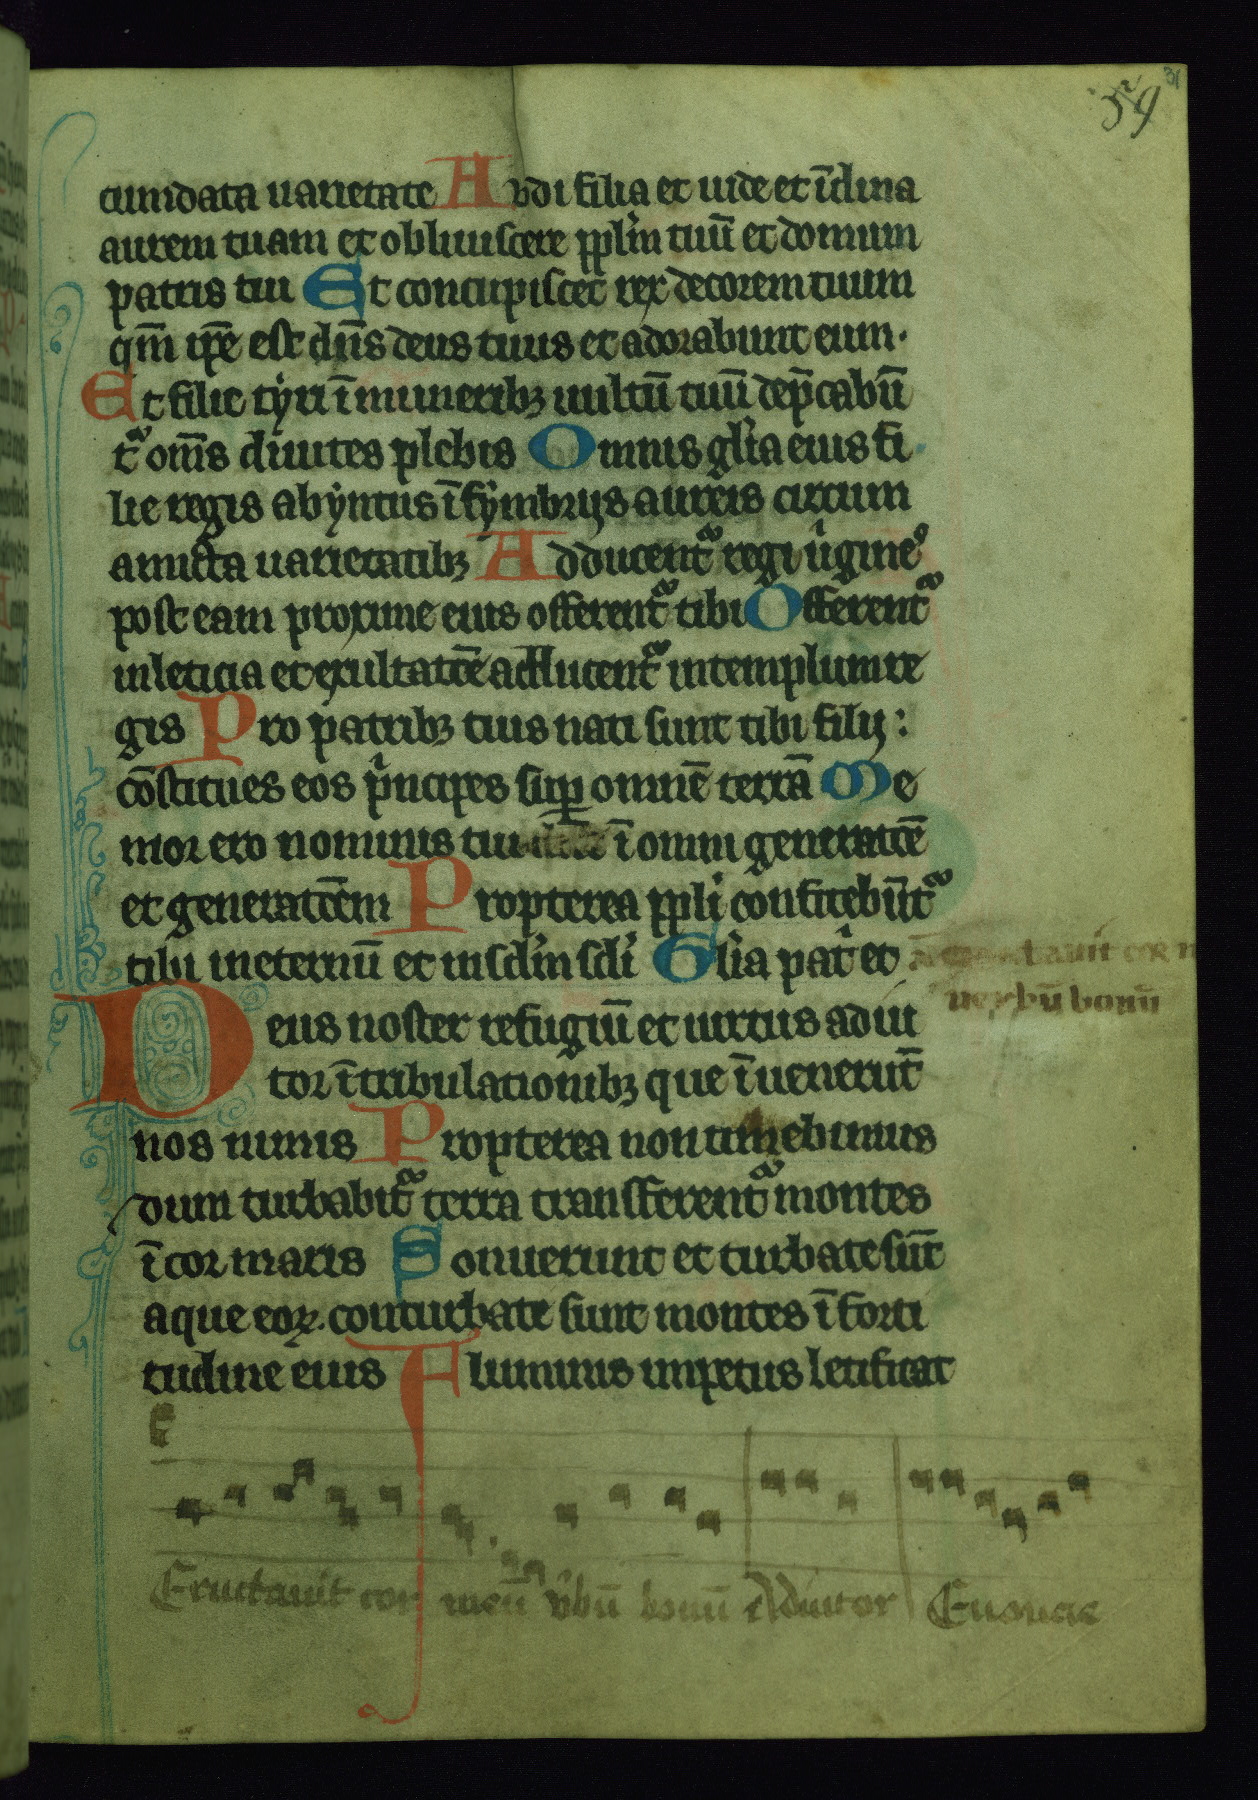 59
31
cumdata uarietate Audi filia et uide et ĩclina
aurem tuam et obliuiscere ppl̃m tuũ et domum
patris tui Et concupiscet rex decorem tuum
qm̃ ip̃e est dñs deus tuus et adorabunt eum.
Et filie tyri ĩ muneribꝫ uultũ tuũ dep̃cabũ
tᷣ om̃s diuites plebis Omnis gl̃ia eius fi
lie regis abyntus ĩ fymbrijs aureis circum
amicta uarietatibꝫ Adducentᷣ regi uĩgines
post eam proxime eius offerentᷣ tibi Offerentᷣ
in leticia et exultatõe adducentᷣ in templum re
gis Pro patribꝫ tuis nati sunt tibi filij:
cõstitues eos pͥncipes sup̱ omnẽ terrã Me
mor ero nominis tui ĩ omni generatõe
et generatõem Propterea ppl̃i confitebũtᷣ
tibi in eternũ et in scl̃m scl̃i Gl̃ia pat̃ et
uerbũ bonũ
Deus noster refugiũ et uirtus adiu
tor ĩ tribulationibꝫ que ĩuenerũt
nos nimis Propterea non timebimus
dum turbabitᷣ terra transferentᷣ montes
ĩ cor maris Sonuerunt et turbate sũt
aque eoꝝ. conturbate sunt montes ĩ forti
tudine eius Fluminis impetus letificat
Eructauit cor meũ ṽbũ bonũ Adiutor Euouae